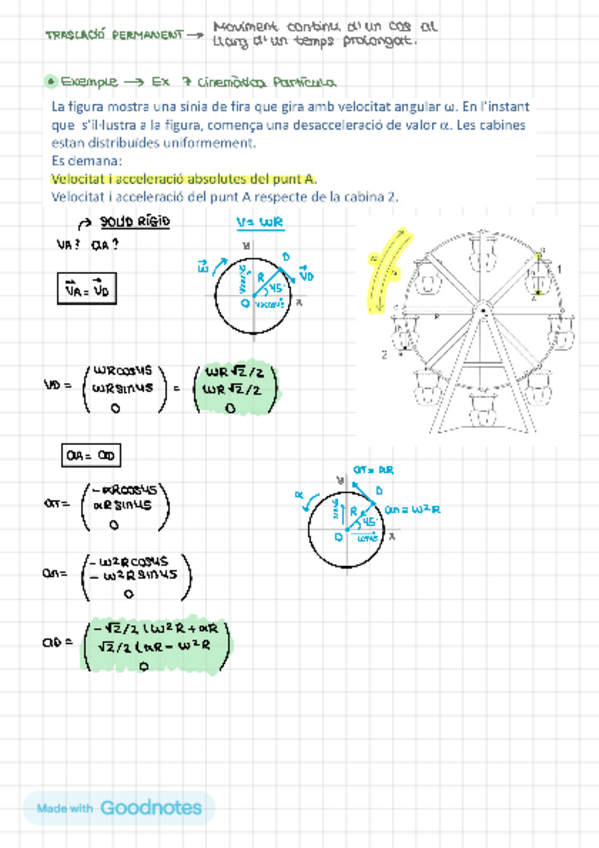 TRASLACIÓ PERMANENT → Moviment continu d'un cos al
llarg d'un temps prolongat.
Exemple → Ex 7 Cinemàtica Partícula
La figura mostra una sínia de fira que gira amb velocitat angular ω. En l'instant
que s'il·lustra a la figura, comença una desacceleració de valor α. Les cabines
estan distribuïdes uniformement.
Es demana:
Velocitat i acceleració absolutes del punt A.
Velocitat i acceleració del punt A respecte de la cabina 2.
SOLID RÍGID
VA? aA?
V = WR
VA = VD
Y
D
R
45
VD
O
X
1
2
VD = ( WRcos45 WRsin45 0 ) = ( WR√2/2 WR√2/2 0 )
aA = aD
aT = αR
Y
D
α
R
an = w²R
45
O
X
aT = ( -αRcos45 αRsin45 0 )
an = ( -w²Rcos45 -w²Rsin45 0 )
aD = ( -√2/2 (w²R + αR √2/2 (αR - w²R 0 )
Made with Goodnotes